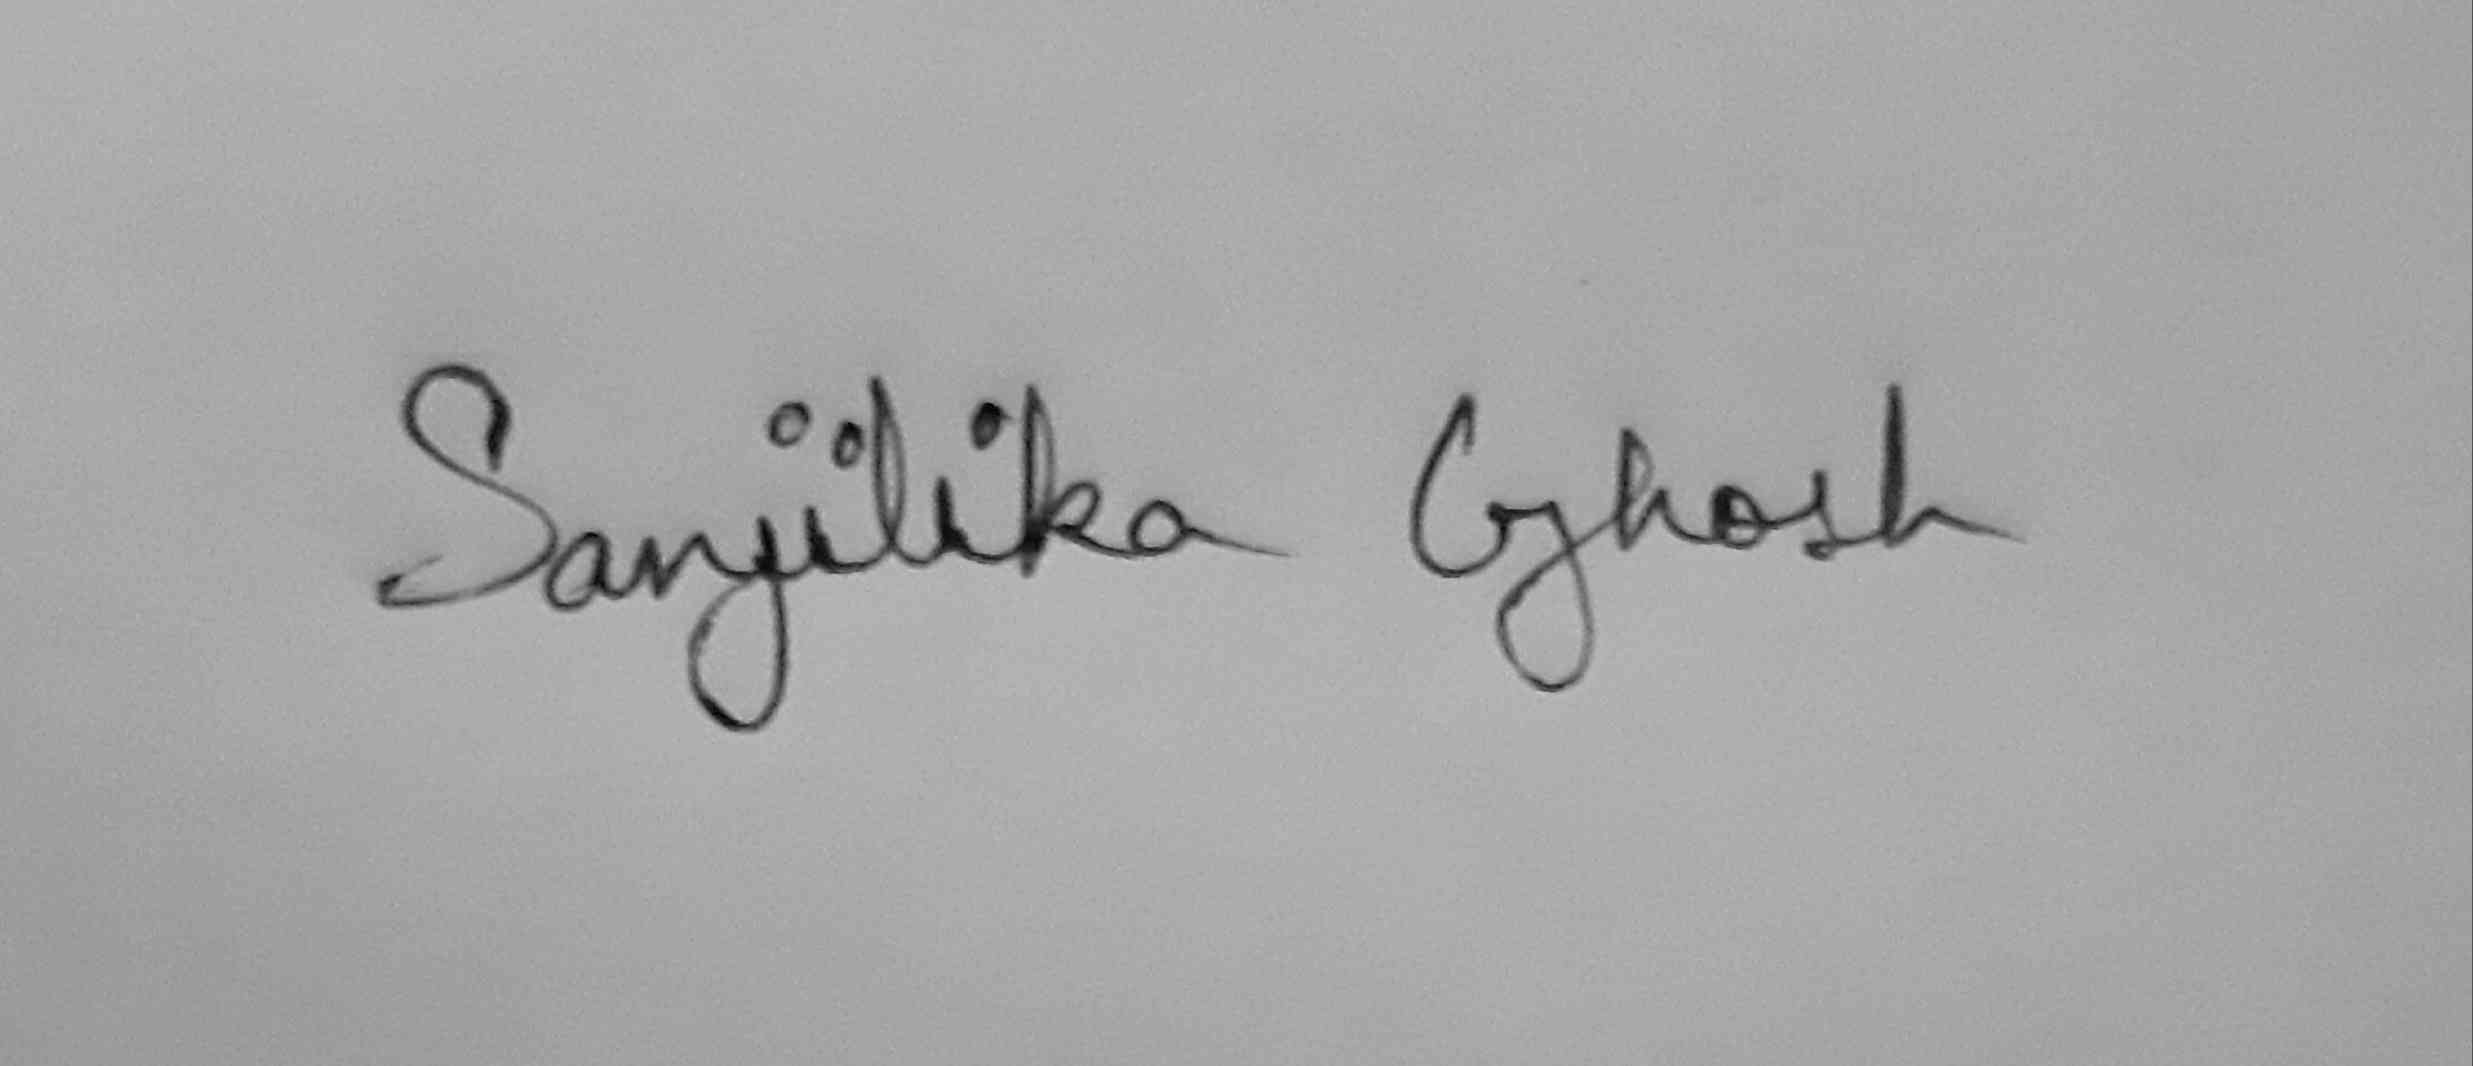 Sanjilika Ghosh